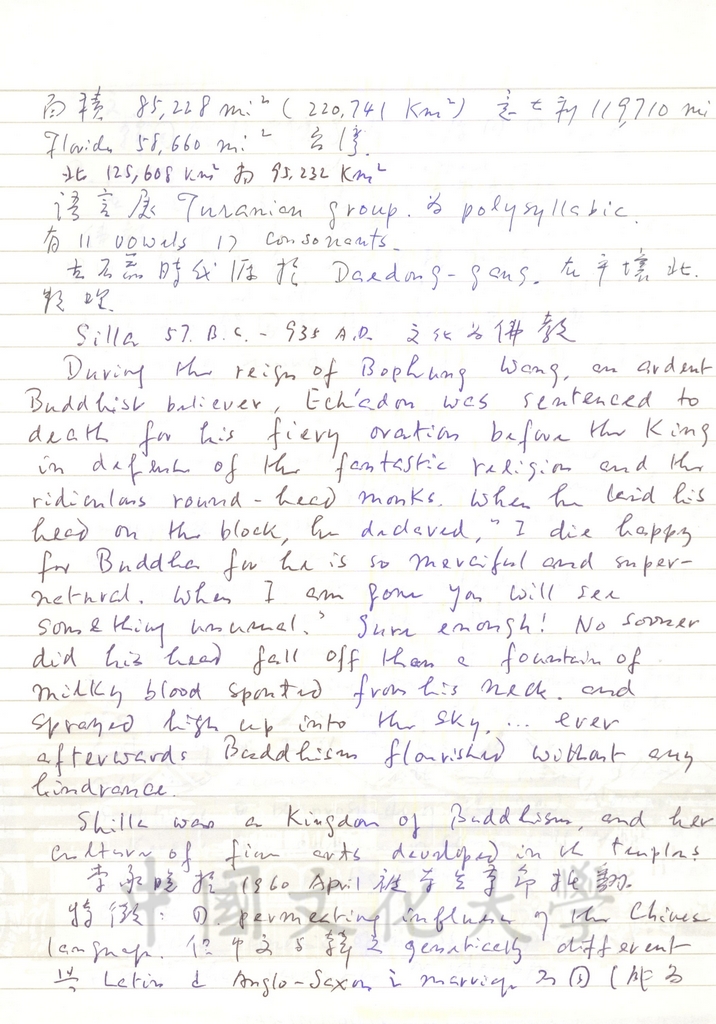 面積 85,228 mi² (220,741 Km²) 意大利 119,710 mi
Florida 58,660 mi² 台灣
北 125,608 Km² 南 95,232 Km²
語言屬 Turanian group. 為 polysyllabic.
有 11 vowels 17 consonants.
去石器時代 於 Daedong-gang. 在平壤北

Silla 57. B.C. - 935 A.D. 文化為佛教
During the reign of Bophung Wang, an ardent
Buddhist believer, Echadon was sentenced to
death for his fiery oration before the King
in defense of the fantastic religion and the
ridiculous round-head monks. When he laid his
head on the block, he declared, "I die happy
for Buddha for he is so merciful and super-
natural. When I am gone you will see
something unusual." Sure enough! No sooner
did his head fall off than a fountain of
milky blood spouted from his neck. and
sprayed high up into the sky, ... ever
afterwards Buddhism flourished without any
hindrance.
Shilla was a Kingdom of Buddhism, and her
culture of fine arts developed in the temples
李承晚於 1960 April 被學生革命推翻.
特徵: ①. permeating influence of the Chinese
language. 但中文與韓文 genetically different
Latin & Anglo-Saxon 之 marriage 不同 (成為
中國文化大學